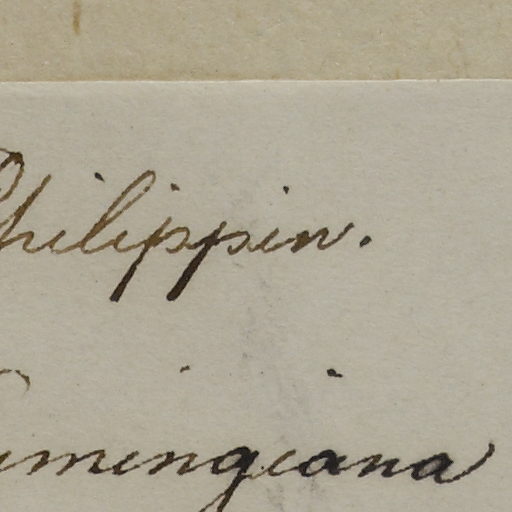 Philippin.
Cumingiana